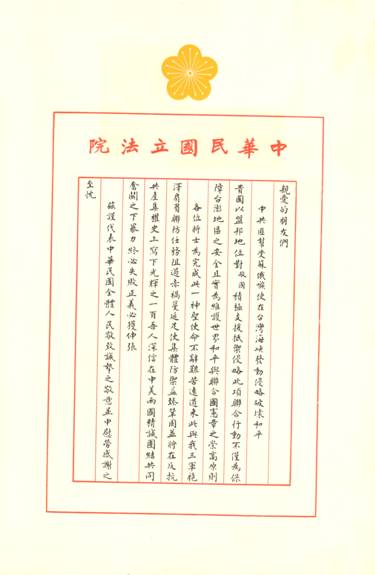 中華民國立法院
親愛的朋友們
中共匪幫受蘇俄嗾使在台灣海峽發動侵略破壞和平
貴國以盟邦地位對我國積極支援抵禦侵略此項聯合行動不僅為保
障台澎地區之安全且實為維護世界和平與聯合國憲章之崇高原則
各位將士為完成此一神聖使命不辭艱苦遠道來此與我三軍袍
澤肩負聯防任務阻遏赤禍蔓延足使集體防禦益臻鞏固並將在反抗
共產集權史上寫下光輝之一頁吾人深信在中美兩國精誠團結共同
奮鬥之下暴力終必失敗正義必獲伸張
茲謹代表中華民國全體人民敬致誠摯之敬意並申慰勞感謝之
至忱